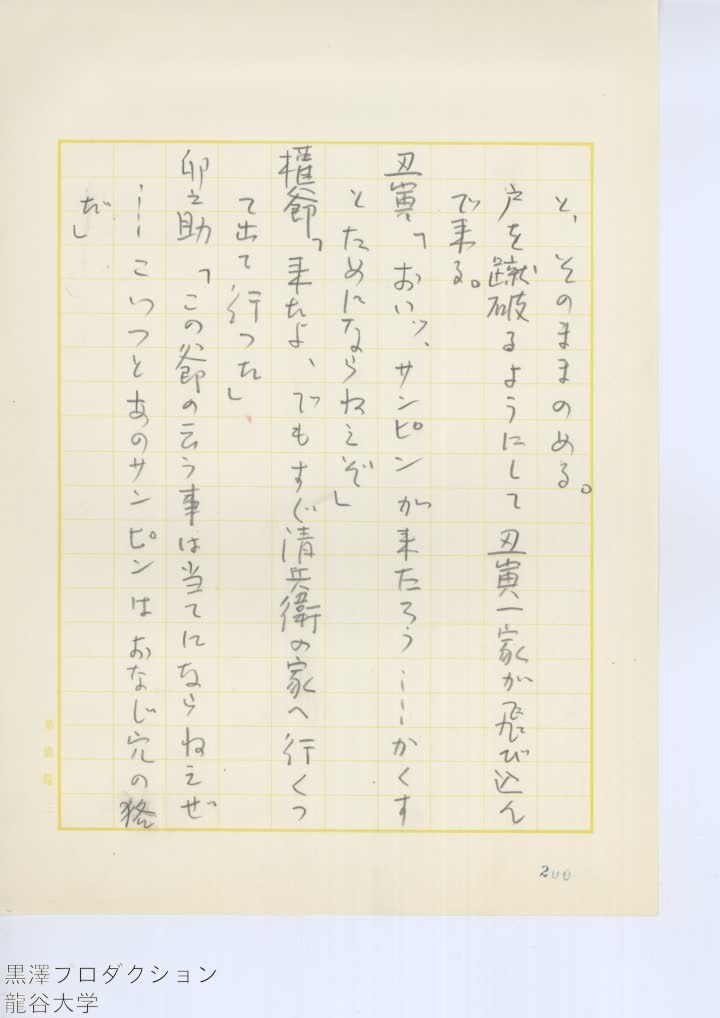 と、そのままのめる。
戸を蹴破るようにして丑寅一家が飛び込ん
で来る。
丑寅「おいッ、サンピンが来たろう……かくす
とためにならねえぞ」
権爺「来たよ、でもすぐ清兵衛の家へ行くっ
て出て行った」
卯之助「この爺の云う事は当てにならねえぜ
……こいつとあのサンピンはおなじ穴の狢
だ」
200
黒澤プロダクション
龍谷大学